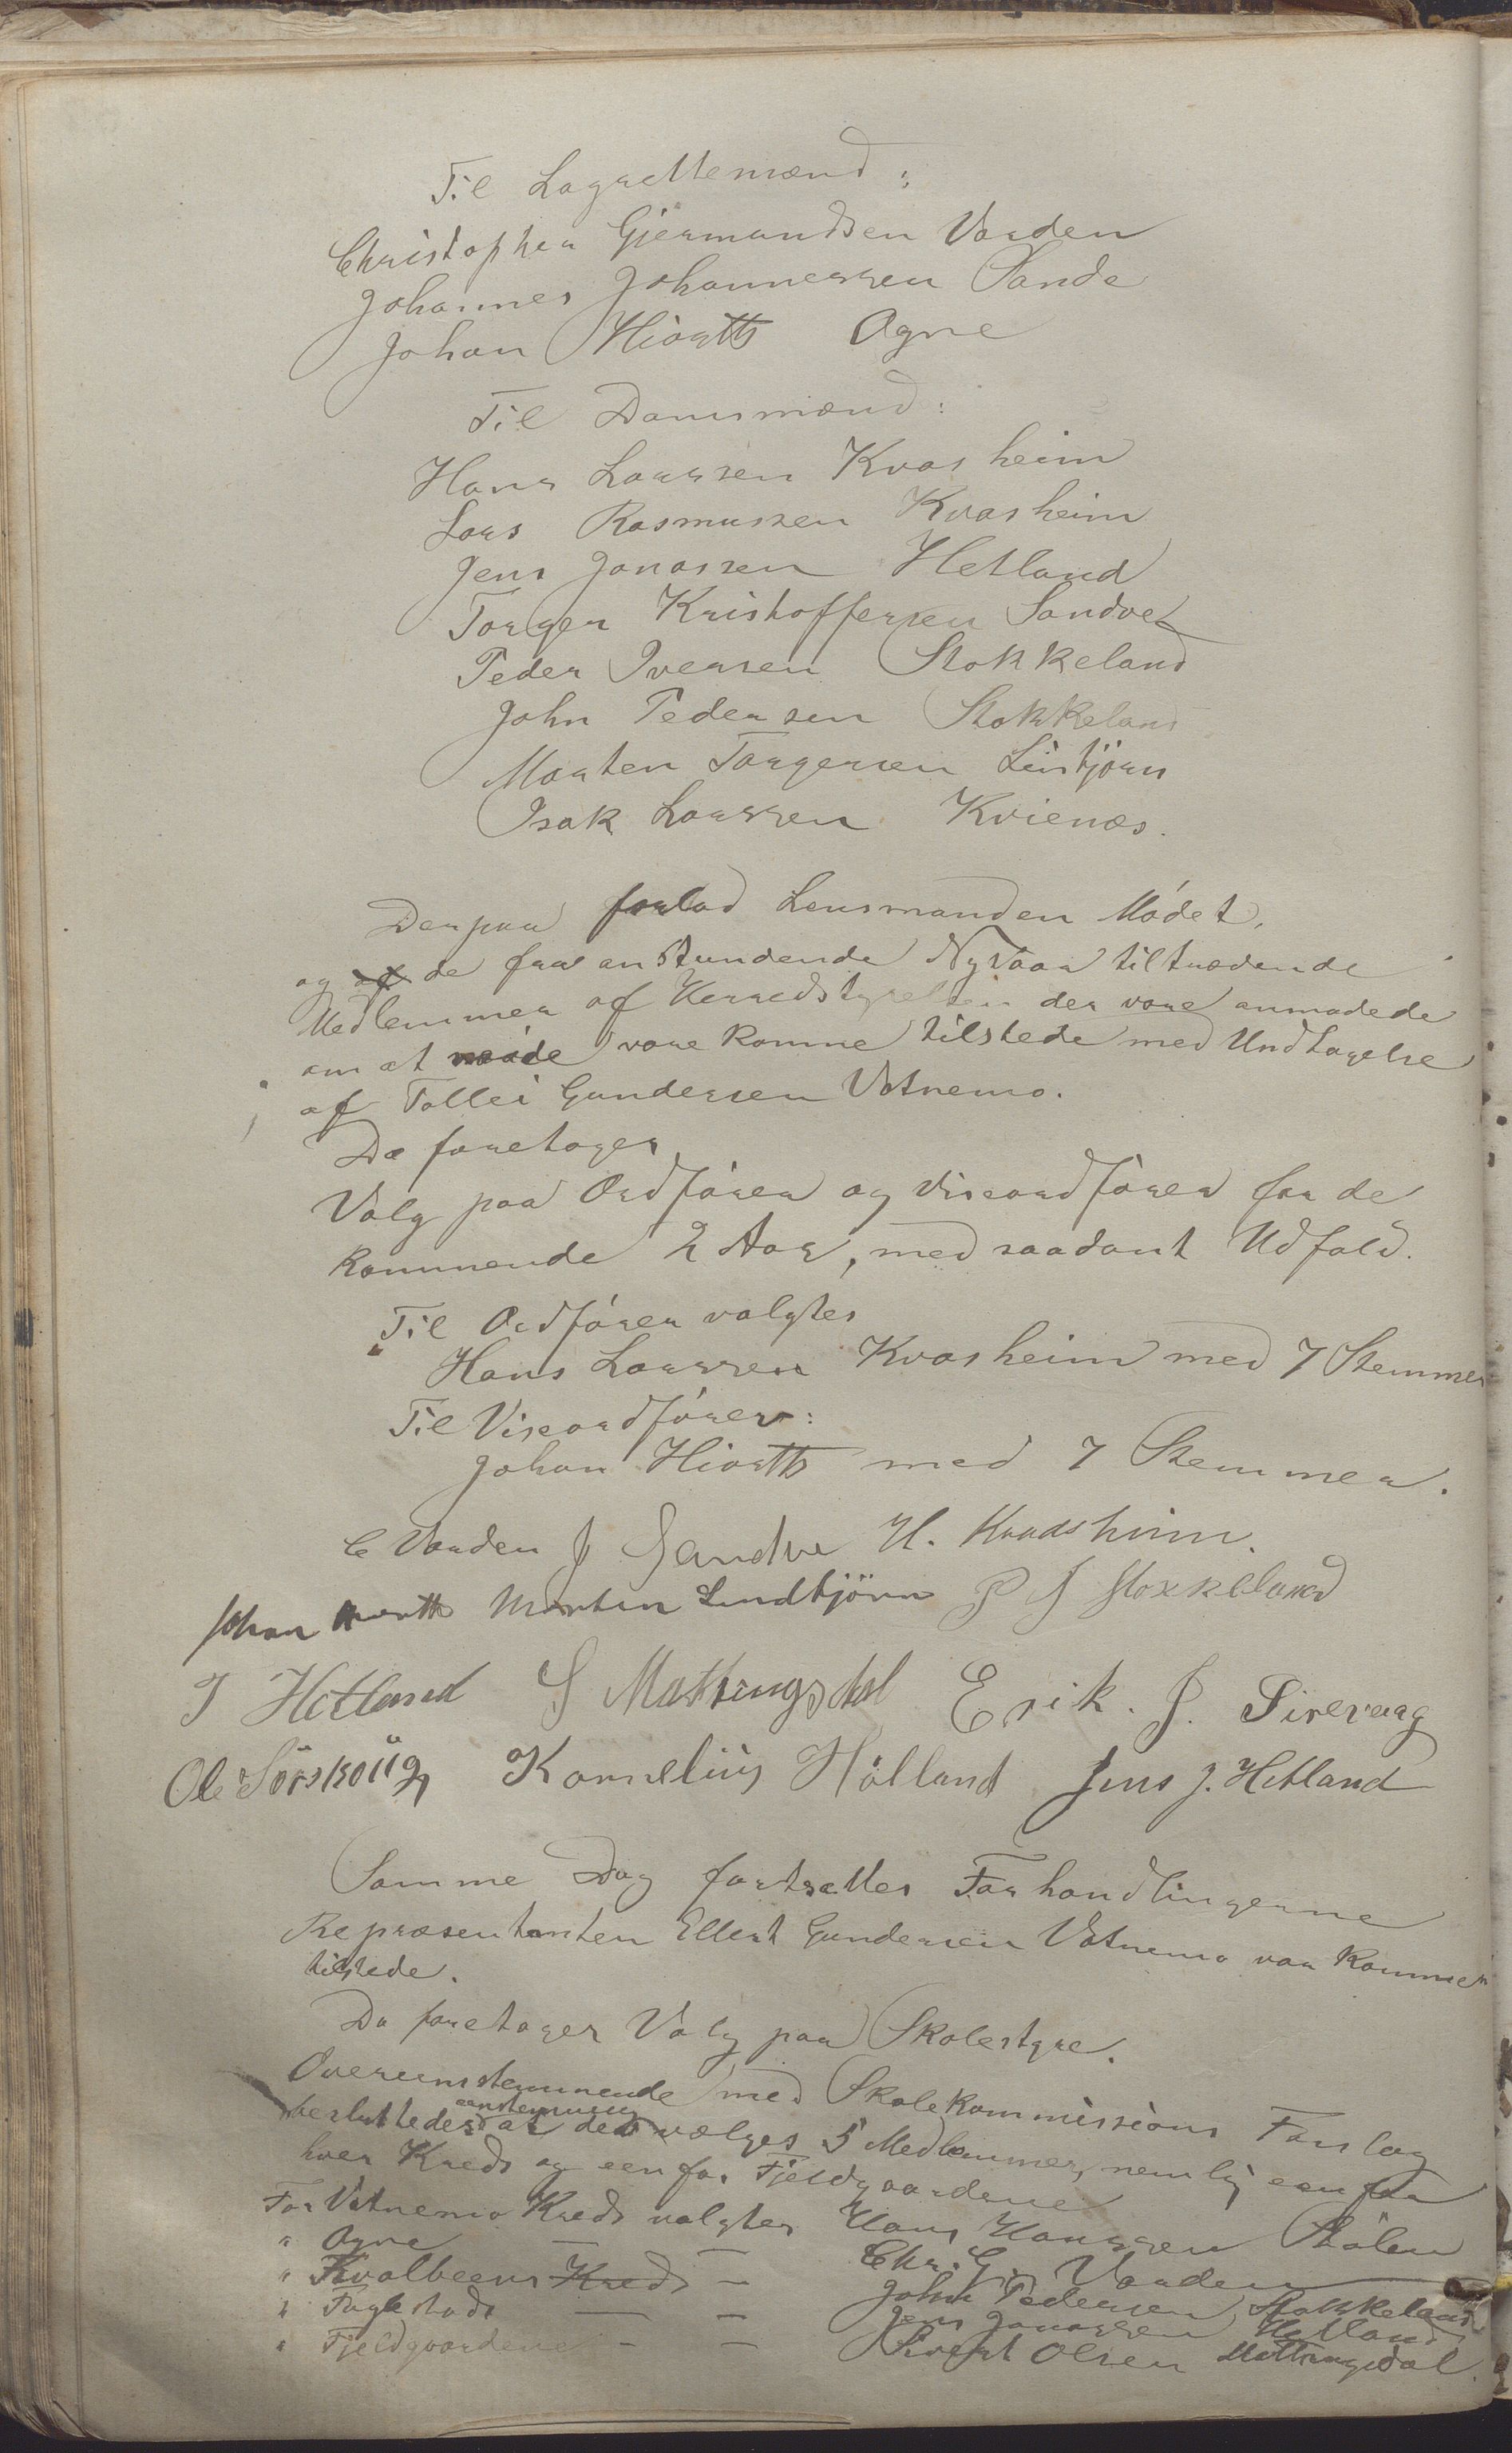 Til Lagrettemænd:
Christopher Gjermundsen Varden
Johannes Johannessen Sande
Johan Hiorth Ogne
Til Domsmænd:
Hans Larssen Kvasheim
Lars Rasmussen Kvasheim
Jens Jonassen Hetland
Torger Kristoffersen Sandve
Peder Iversen Stokkeland
John Pedersen Stokkeland
Morten Torgersen Lintjörn
Isak Larssen Kvienæs.
Derpaa forlod Lensmanden Mödet,
og de fra anstundende Nytaar tiltrædende
Medlemmer af Herredstyrelsen der vare anmodede
om at möde vare komne tilstede med Undtagelse
af Tollei Gundersen Votnemo.
Da foretoges
Valg paa Ordförer og Viseordförer for de
kommende 2 Aar, med saadant Udfald.
Til Ordförer valgtes
Hans Larssen Kvasheim med 7 Stemmer
Til Viseordförer:
Johan Hiorth med 7 Stemmer.
C Varden J Sandve H. Kvadsheim.
Johan Hiorth Morten Lindtjörn P J Stokkeland
J Hetland S Mattingsdal Erik. J. Sirevaag
Ole Sörskoug Kornelius Hölland Jens J. Hetland
Samme Dag fortsattes Forhandlingerne
Repræsentanten Ellert Gundersen Votnemo var kommen
tilstede.
Da foretoges Valg paa Skolestyre.
Overeensstemmende med Skolekommissions Forslag
besluttedes eenstemmig at der vælges 5 Medlemmer, nemlig een for
hver Kreds og een for Fjeldgaardene
For Votnemo Kreds valgtes Hans Hanssen Stölen
" Ogne — Chr. G. Varden
" Kvalbeens Kreds — John Pedersen Stokkeland
" Fuglestads — — Jens Jonassen Hetland
" Fjeldgaardene — — Sivert Olsen Mattingsdal.